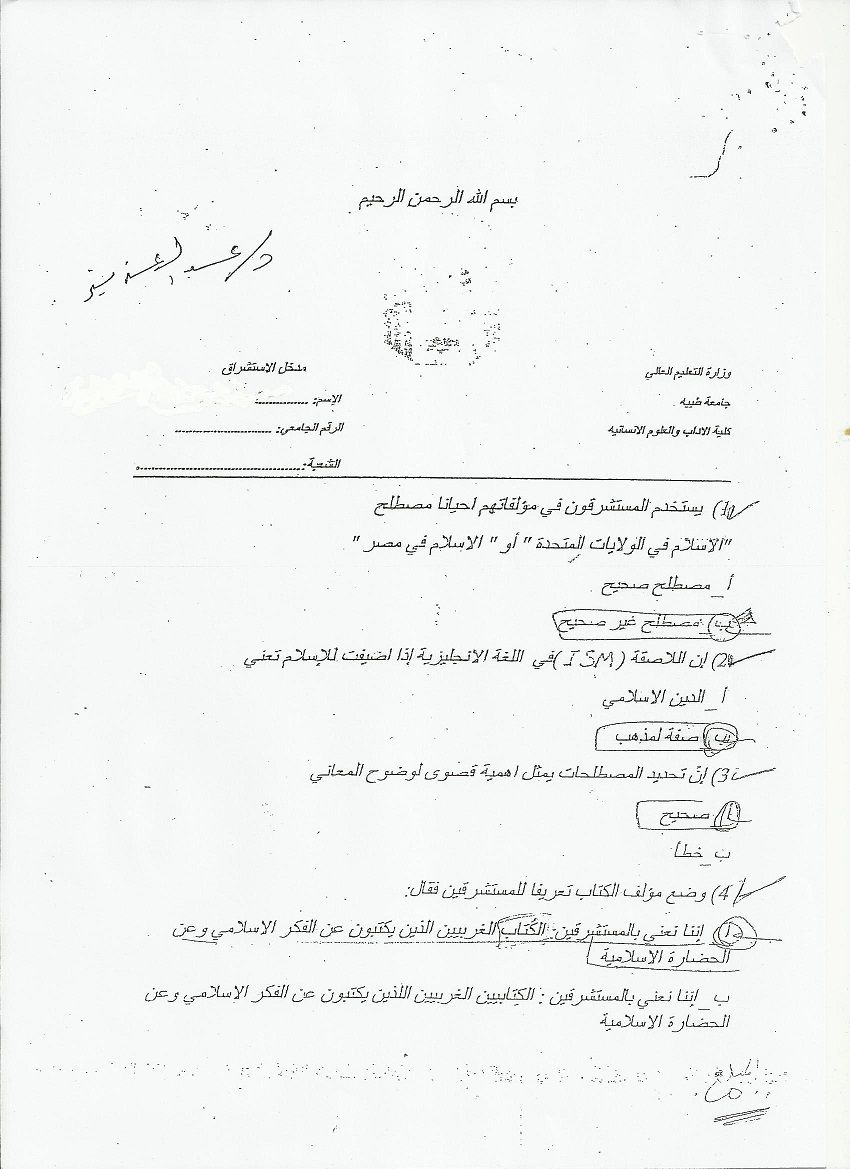 بسم الله الرحمن الرحيم
د/عبدالعزيز
وزارة التعليم العالي
مدخل الاستشراق
جامعة طيبه
الإسم: ..............
كلية الاداب والعلوم الانسانيه
الرقم الجامعي: ..........................
الشعبة: ............................................
1) يستخدم المستشرقون في مؤلفاتهم احيانا مصطلح
"الاسلام في الولايات المتحدة " أو " الاسلام في مصر "
أ_ مصطلح صحيح
ب_ مصطلح غير صحيح
2) إن اللاصقة ( ISM )في اللغة الانجليزية إذا اضيفت للإسلام تعني
أ_ الدين الاسلامي
ب_ صفة لمذهب
3) إنّ تحديد المصطلحات يمثل اهمية قصوى لوضوح المعاني
أ_ صحيح
ب_ خطأ
4) وضع مؤلف الكتاب تعريفا للمستشرقين فقال:
أ_ إننا نعني بالمستشرقين: الكُتاب الغربيين الذين يكتبون عن الفكر الاسلامي وعن
الحضارة الاسلامية
ب_ إننا نعني بالمستشرقين : الكتابيين الغربيين اللذين يكتبون عن الفكر الاسلامي وعن
الحضارة الاسلامية